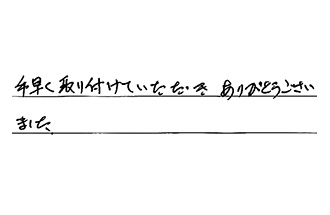 手早く取り付けていただき ありがとうござい
ました